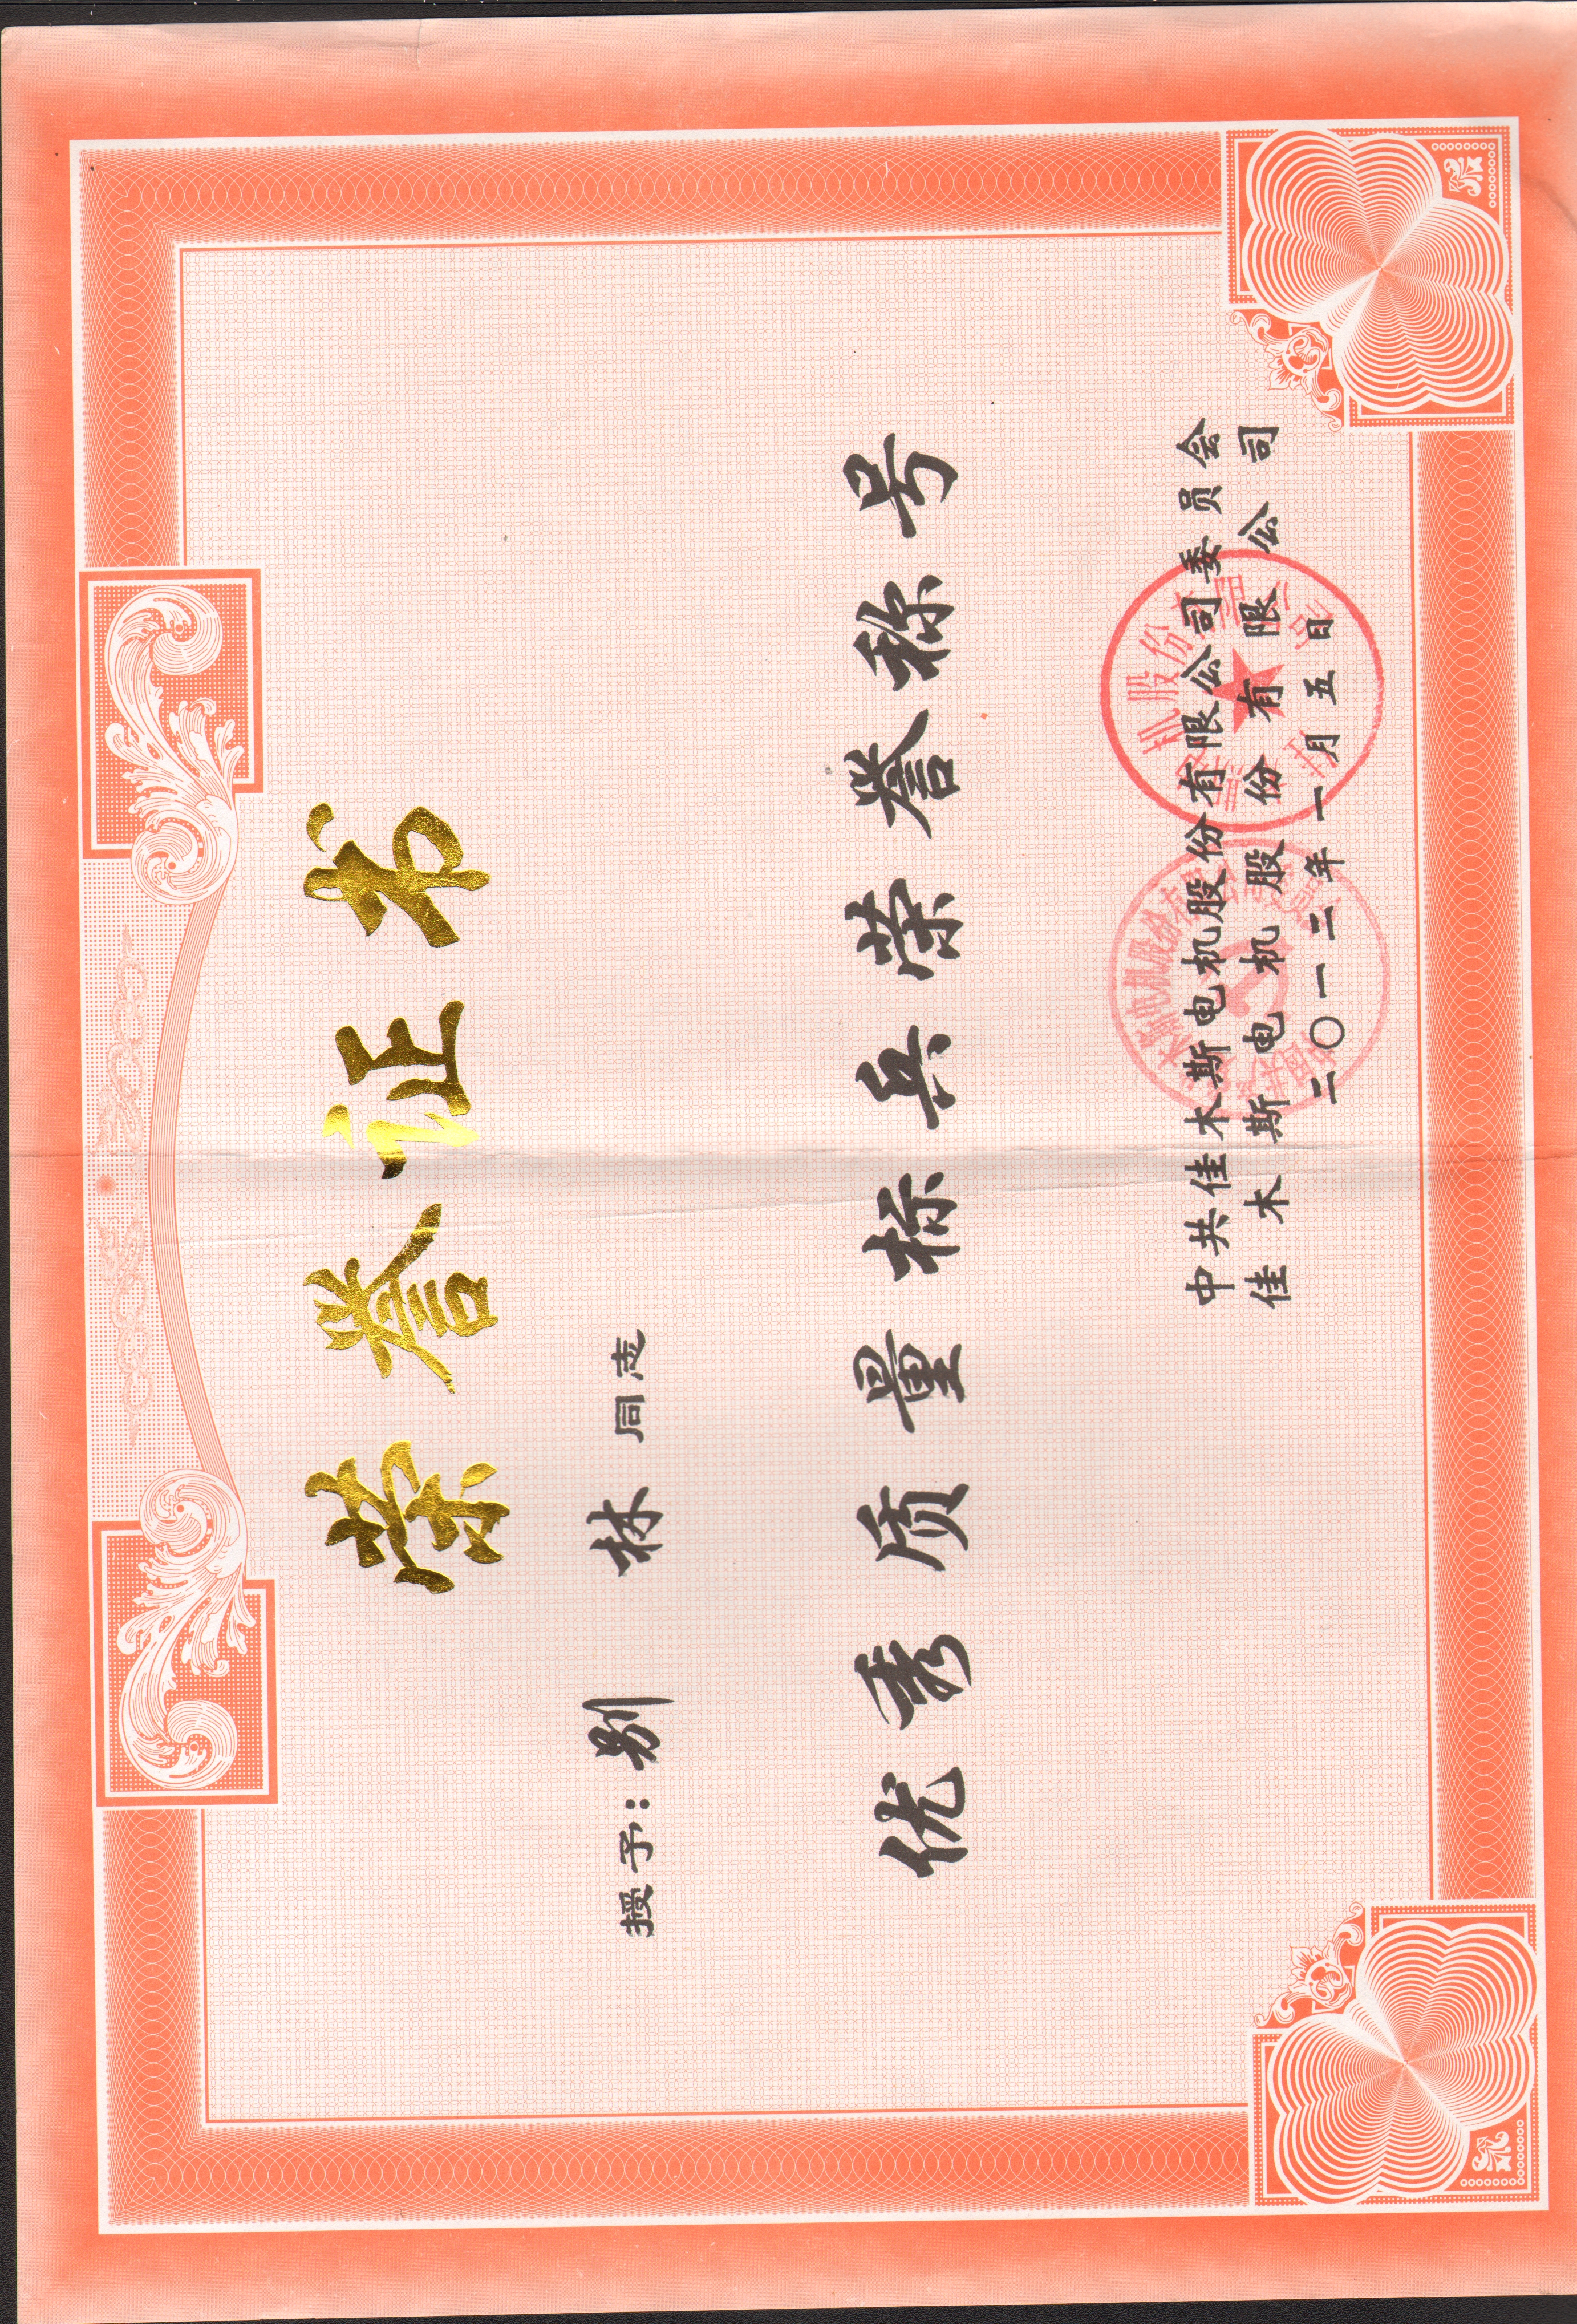 荣誉证书
授予：别 林 同志
优秀质量标兵荣誉称号
中共佳木斯电机股份有限公司委员会
佳木斯电机股份有限公司
二〇一二年一月五日